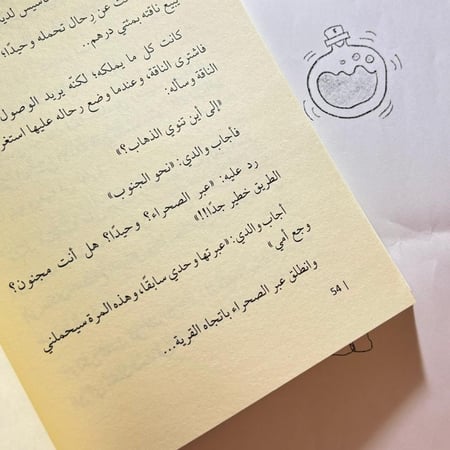 عن رحال تحمله وحيدًا؛
يبيع ناقته بمئتي درهم..
كانت كل ما يملكه؛ لكنّه يريد الوصول
فاشترى الناقة، وعندما وضع رحاله عليها استغر
الناقة وسأله:
«إلى أين تنوي الذهاب؟»
فأجاب والدي: «نحو الجنوب»
رد عليه: «عبر الصحراء؟ وحيدًا؟ هل أنت مجنون؟
الطريق خطير جدًا!!!»
أجاب والدي: «عبرتها وحدي سابقًا، وهذه المرة سيحملني
وجع أمي»
وانطلق عبر الصحراء باتجاه القرية...
54 |